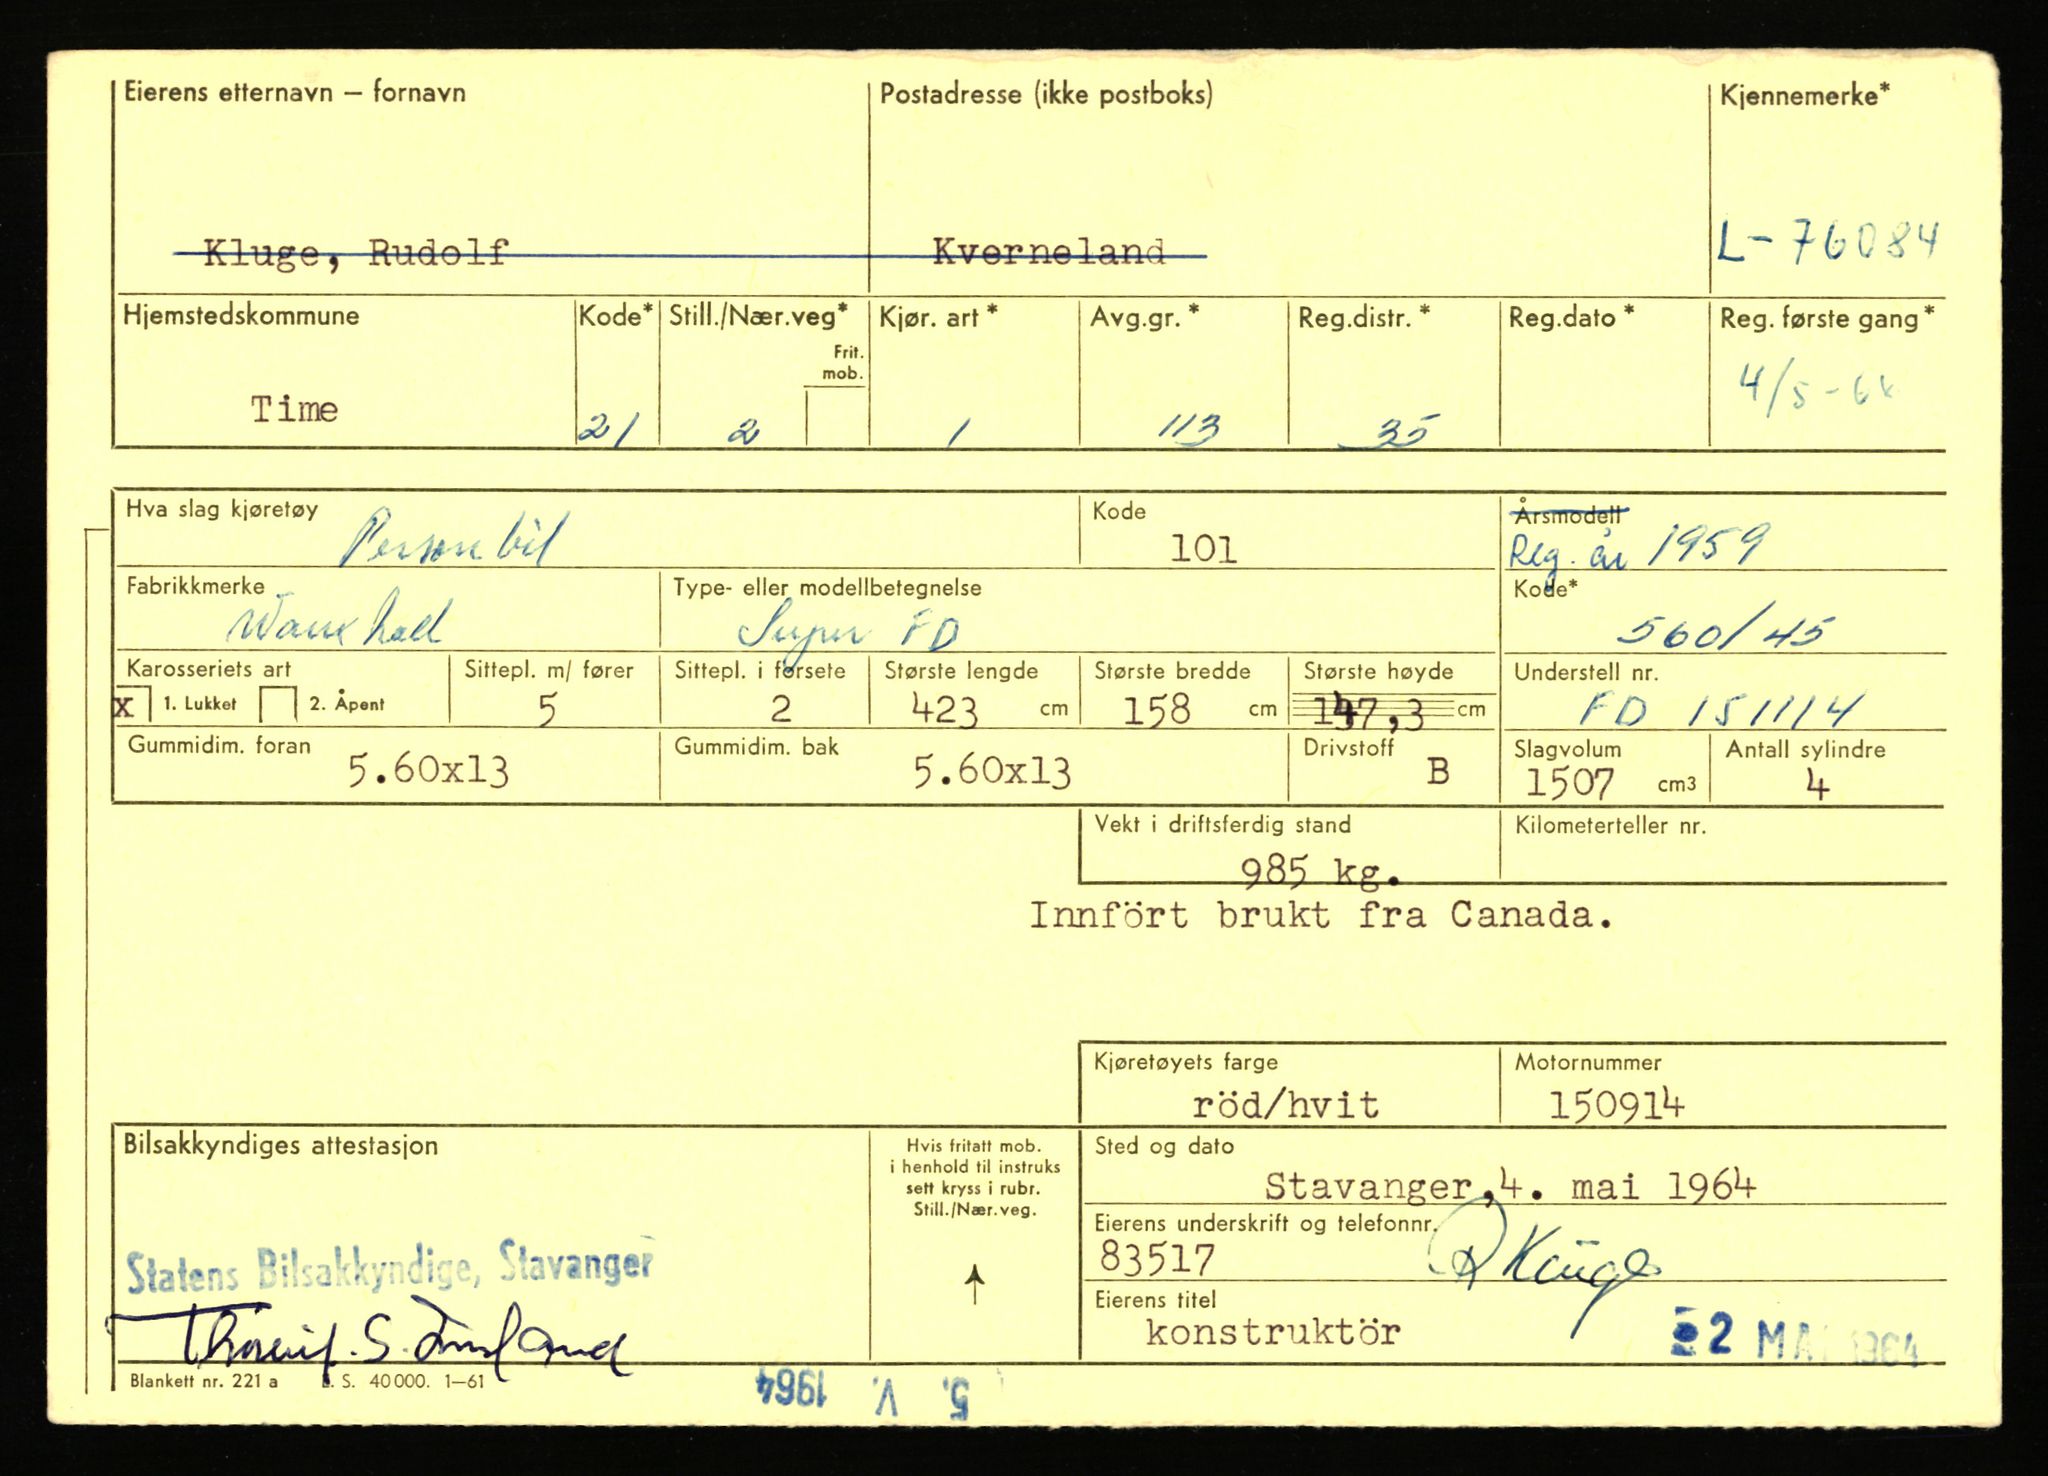 Eierens etternavn – fornavn Postadresse (ikke postboks) Kjennemerke*
Kluge, Rudolf Kverneland L-76084
Hjemstedskommune Kode* Still./Nær.veg* Kjør. art* Avg.gr.* Reg.distr.* Reg.dato* Reg. første gang*
Frit.
mob.
Time 21 2 1 113 35 4/5-64
Hva slag kjøretøy Kode Årsmodell
Personbil 101 Reg. år 1959
Fabrikkmerke Type- eller modellbetegnelse Kode*
Wauxhall Super FD 560/45
Karosseriets art Sittepl. m/ fører Sittepl. i forsete Største lengde Største bredde Største høyde Understell nr.
x 1. Lukket 2. Åpent 5 2 423 cm 158 cm 147,3 cm FD 151114
Gummidim. foran Gummidim. bak Drivstoff Slagvolum Antall sylindre
5.60x13 5.60x13 B 1507 cm3 4
Vekt i driftsferdig stand Kilometerteller nr.
985 kg.
Innfört brukt fra Canada.
Kjøretøyets farge Motornummer
röd/hvit 150914
Bilsakkyndiges attestasjon Hvis fritatt mob. Sted og dato
i henhold til instruks
sett kryss i rubr.
Still./Nær.veg.
Stavanger,4. mai 1964
Eierens underskrift og telefonnr.
83517 R Kluge
Statens Bilsakkyndige, Stavanger
Eierens titel
konstruktör
2 MAI 1964
Blankett nr. 221 a E. S. 40 000. 1–61
5. V. 1964